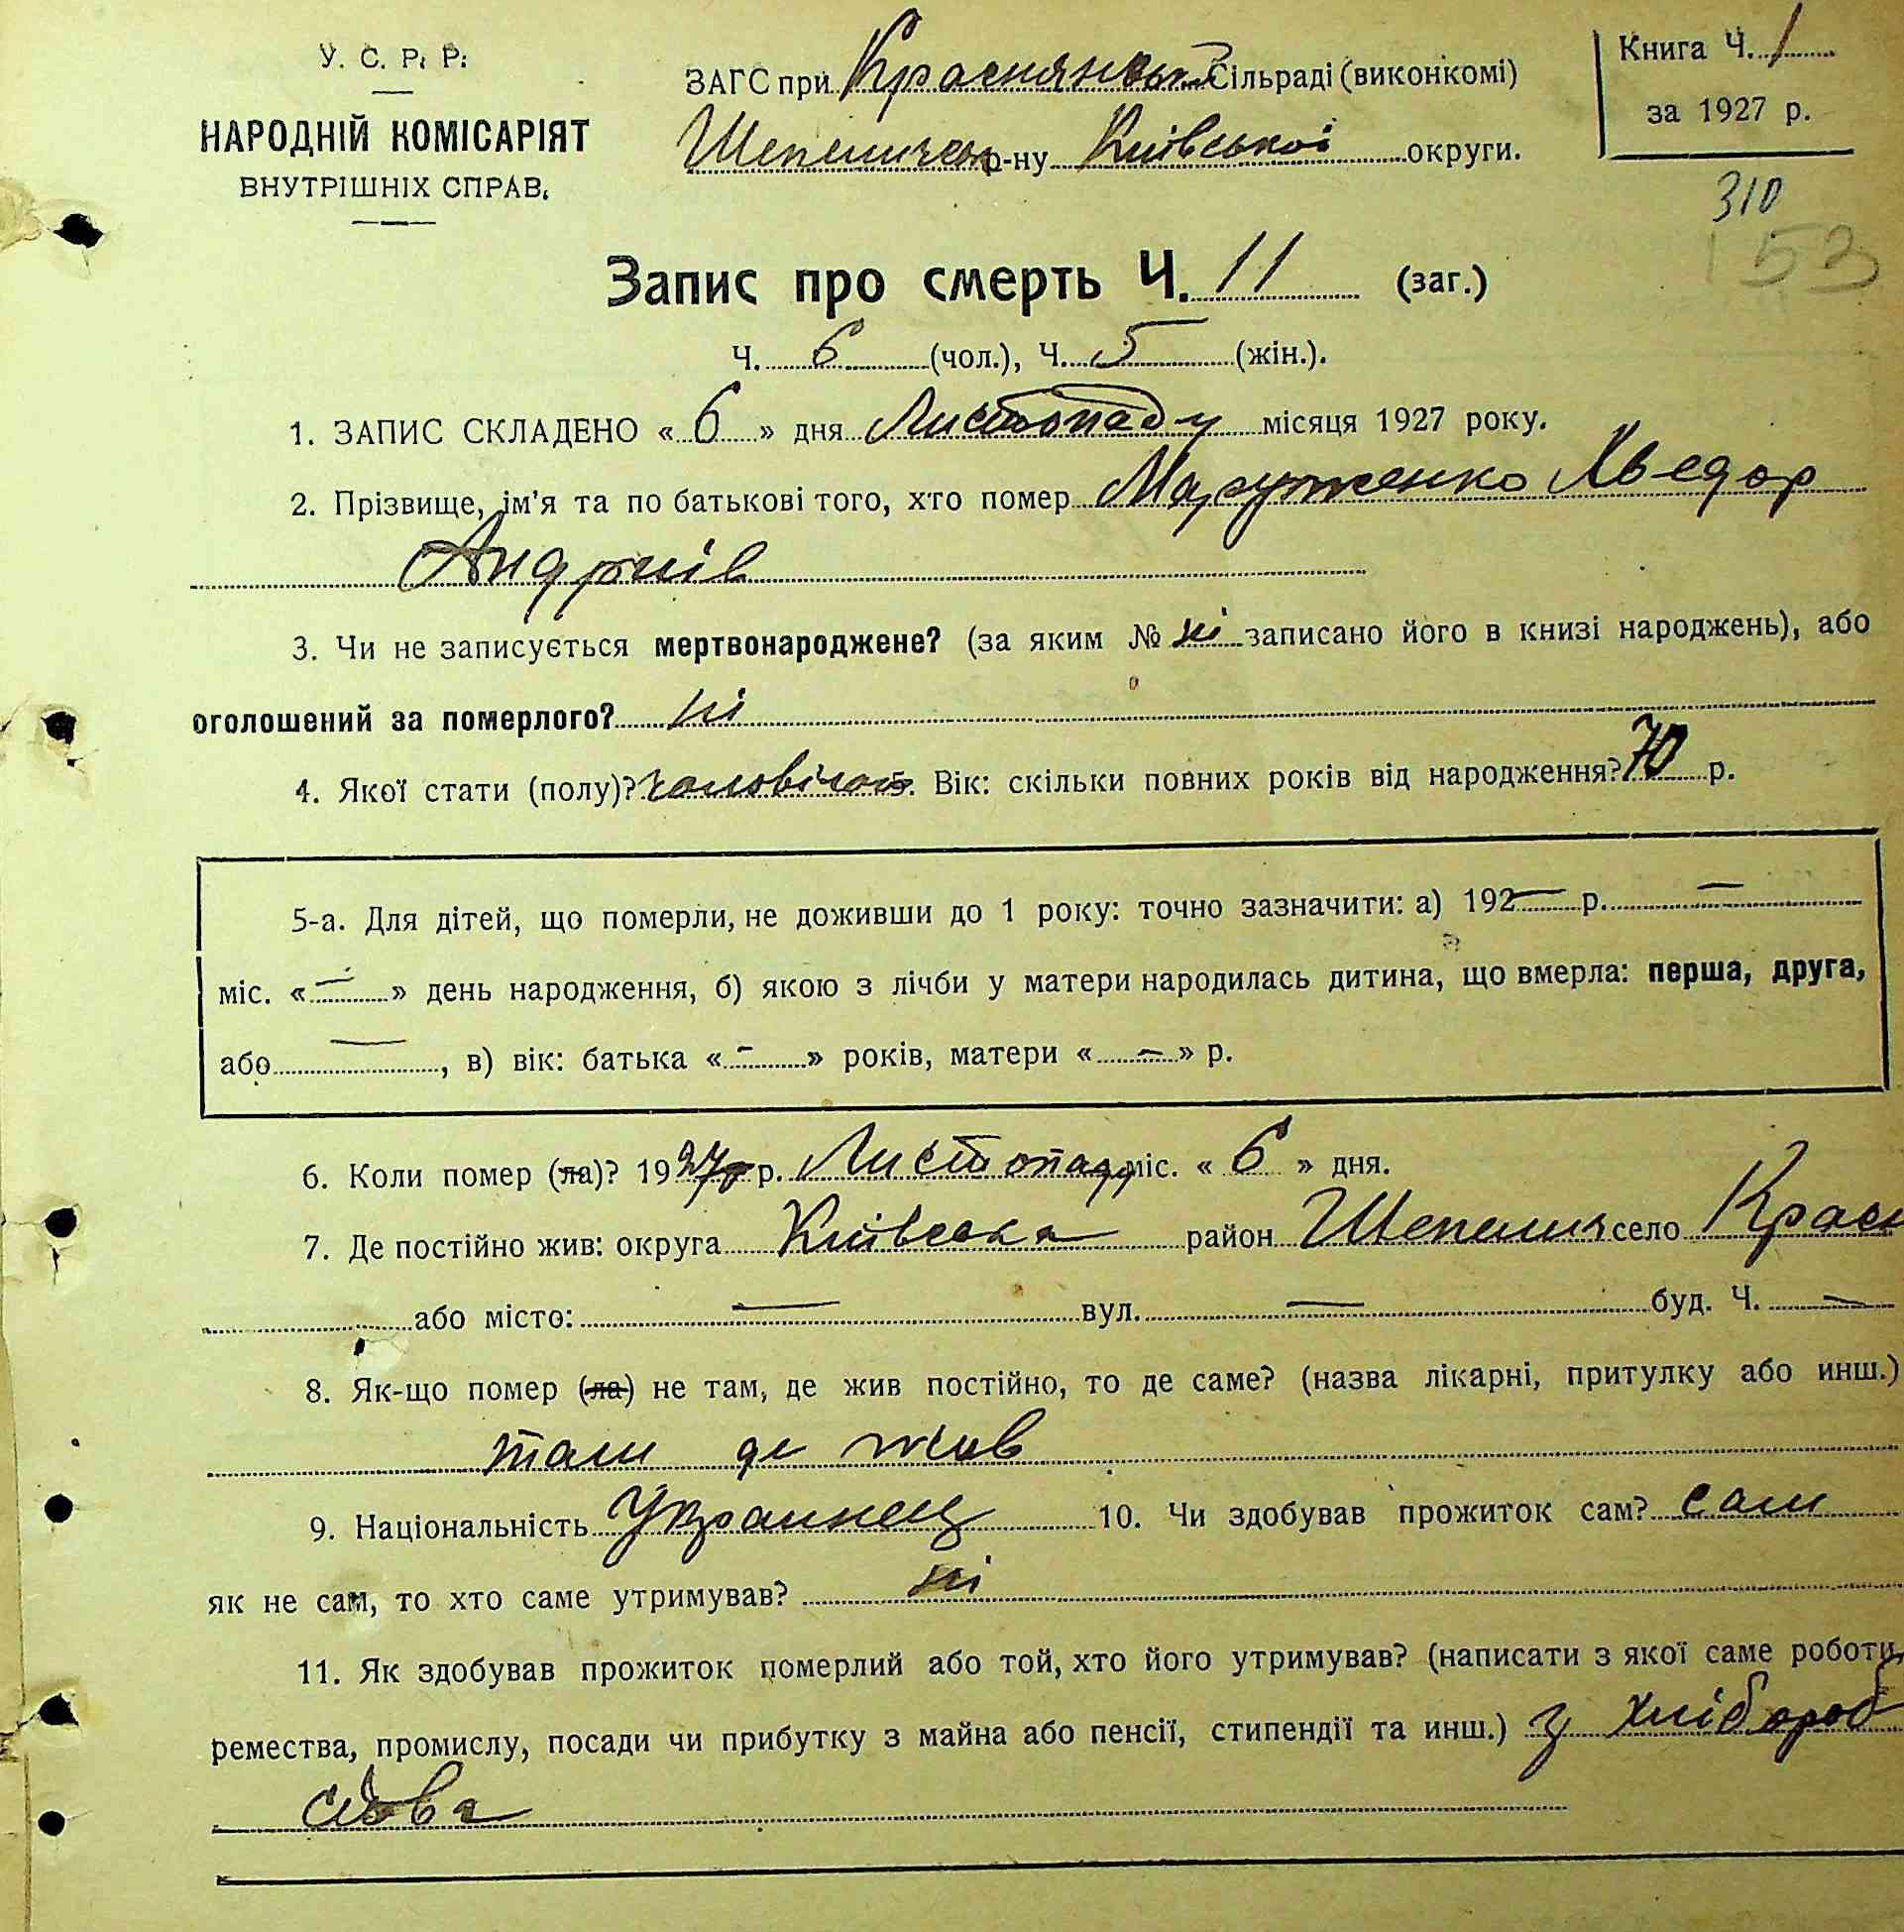 У. С. Р. Р.
НАРОДНІЙ КОМІСАРІЯТ
ВНУТРІШНІХ СПРАВ.
ЗАГС при Краснянській Сільраді (виконкомі)
Шепелицьк р-ну Київської округи.
Книга Ч. 1
за 1927 р.
310
153
Запис про смерть Ч. 11 (заг.)
Ч. 6 (чол.), Ч. 5 (жін.).
1. ЗАПИС СКЛАДЕНО « 6 » дня Листопаду місяця 1927 року.
2. Прізвище, ім'я та по батькові того, хто помер Хведор
Андріїв
3. Чи не записується мертвонароджене? (за яким № ні записано його в книзі народжень), або
оголошений за померлого? ні
4. Якої стати (полу)? чоловічої 5. Вік: скільки повних років від народження? 70 р.
5-а. Для дітей, що померли, не доживши до 1 року: точно зазначити: а) 192— р. —
міс. « — » день народження, б) якою з лічби у матери народилась дитина, що вмерла: перша, друга,
або — , в) вік: батька « — » років, матери « — » р.
6. Коли помер (ла)? 1927 р. Листопаду міс. « 6 » дня.
7. Де постійно жив: округа Київська район Шепелич село Красн
або місто: — вул. — буд. Ч. —
8. Як-що помер (ла) не там, де жив постійно, то де саме? (назва лікарні, притулку або инш.)
там де жив
9. Національність Украинец 10. Чи здобував прожиток сам? сам
як не сам, то хто саме утримував? ні
11. Як здобував прожиток померлий або той, хто його утримував? (написати з якої саме роботи,
ремества, промислу, посади чи прибутку з майна або пенсії, стипендії та инш.) з хлібороб
ства